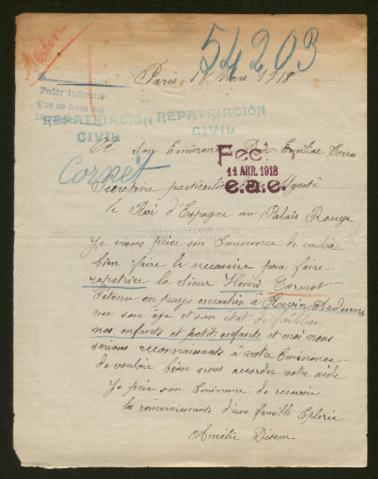 54203
Paris 18 Mars 1918
Pedir informe
Que se haga
REPATRIACIÓN
CIVIL
REPATRIACIÓN
CIVIL
A Son Eminence Don Emilio
Cornet
Fecl
11 ABR. 1918
e.a.e.
Secrétaire particulier
le Roi d'Espagne au Palais Rouge
Je viens prier son Eminence de vouloir
bien faire le nécessaire pour faire
rapatrier le Sieur Henri Cornet
détenu en pays envahis à Revin
vu son âge et son état de
nos enfants et petits enfants et moi nous
serions reconnaissants à votre Eminence
de vouloir bien nous accorder votre aide
Je prie son Eminence de recevoir
les remerciements d'une famille Eplorée
Amélie